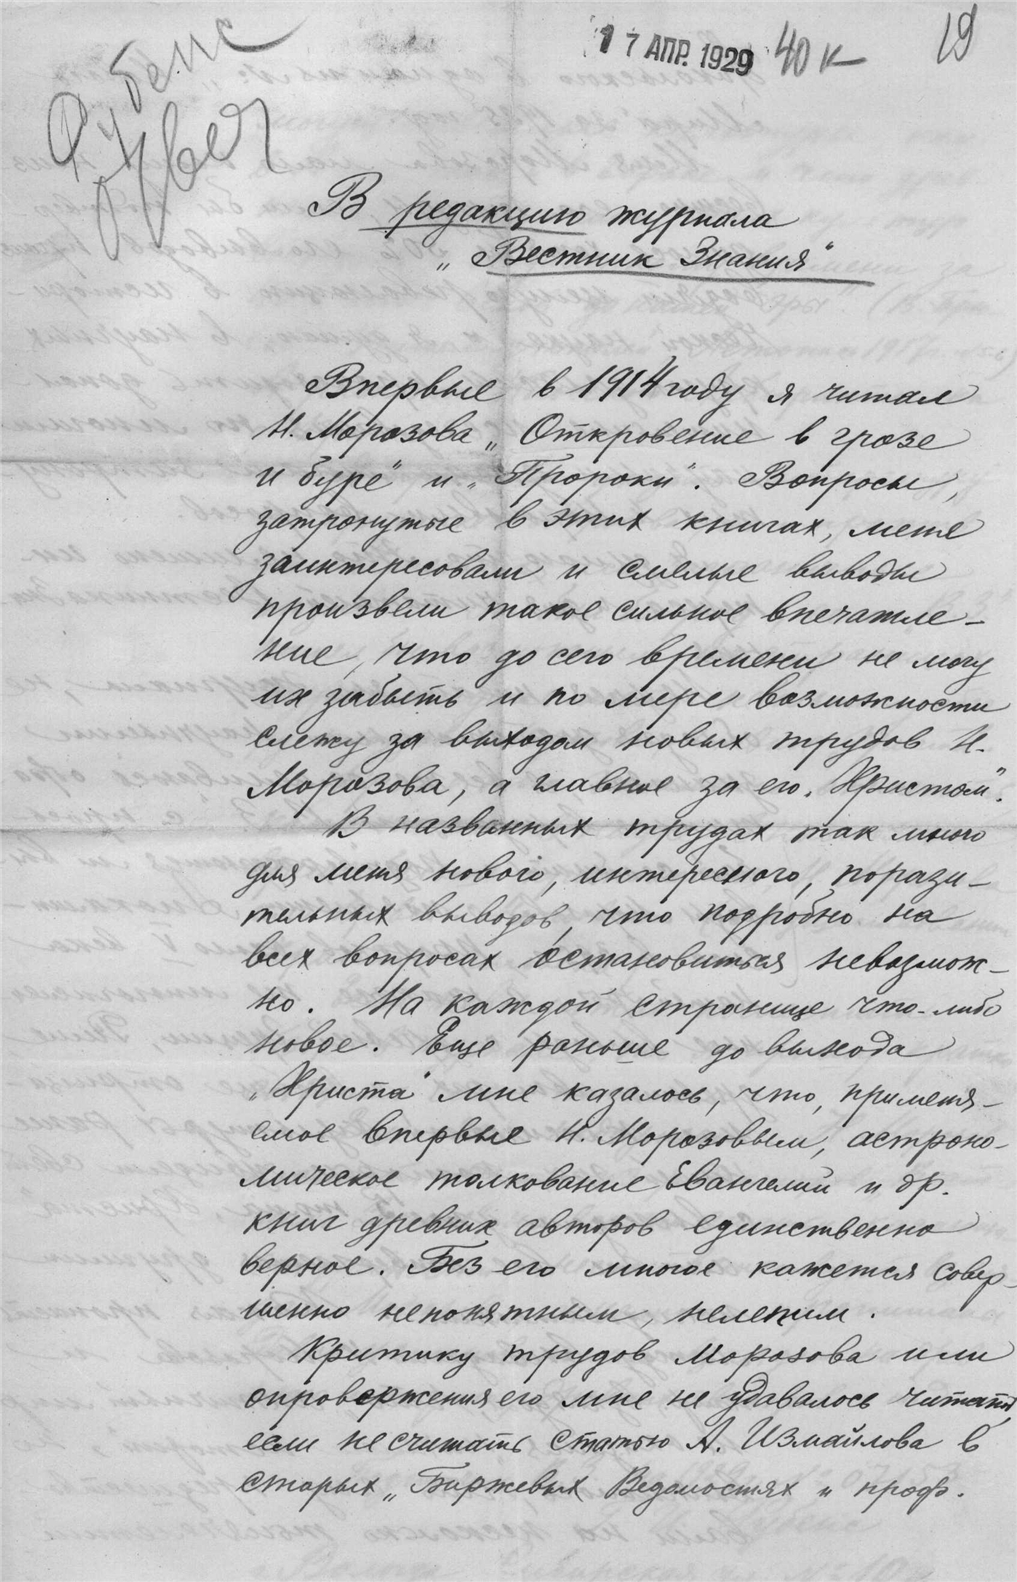 17 АПР. 1929 40 к 19
В редакцию журнала
„Вестник Знания"
Впервые в 1914 году я читал
Н. Морозова „Откровение в грозе
и буре" и „Пророки". Вопросы,
затронутые в этих книгах, меня
заинтересовали и смелые выводы
произвели такое сильное впечатле-
ние, что до сего времени не могу
их забыть и по мере возможности
слежу за выходом новых трудов Н.
Морозова, а главное за его „Христом".
В названных трудах так много
для меня нового, интересного, порази-
тельных выводов, что подробно на
всех вопросах остановиться невозмож-
но. На каждой странице что-либо
новое. Еще раньше до выхода
„Христа" мне казалось, что, применя-
емое впервые Н. Морозовым, астроно-
мическое толкование Евангелий и др.
книг древних авторов единственно
верное. Без его многое кажется совер-
шенно непонятным, нелепым.
Критику трудов Морозова или
опровержения его мне не удавалось читать,
если не считать статью А. Измайлова в
старых „Биржевых Ведомостях" проф.